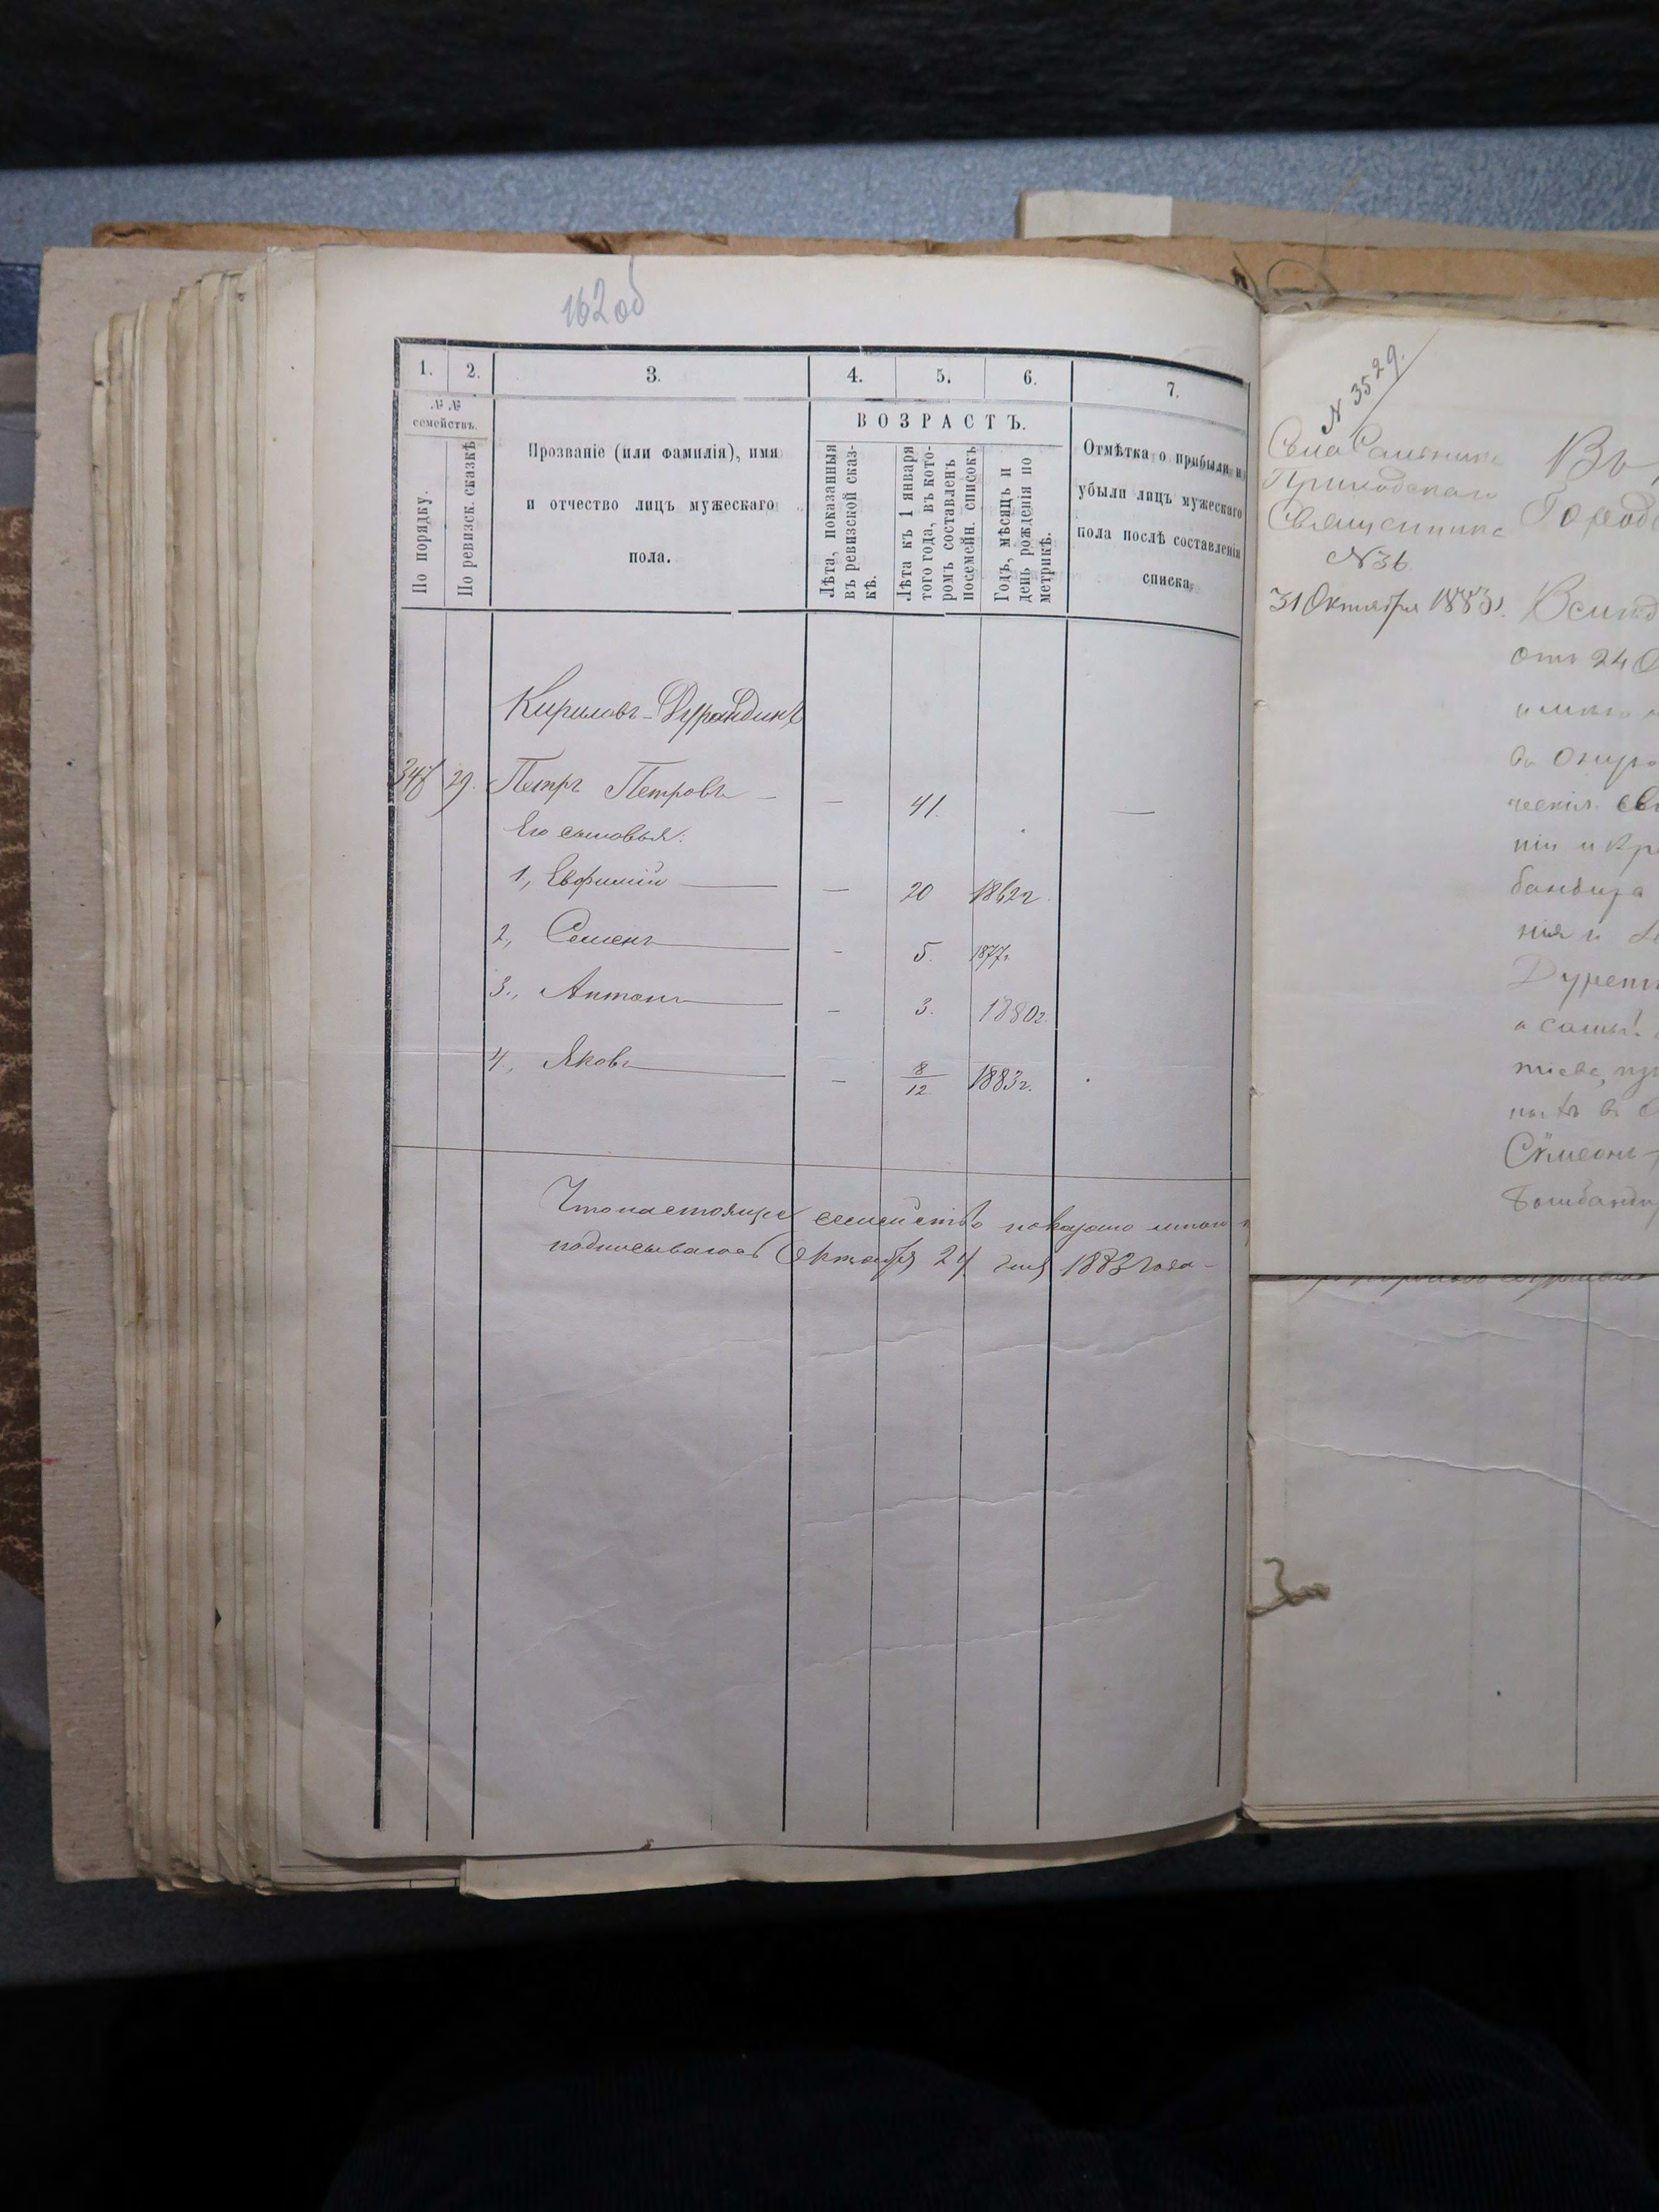 162 об
1. 2. 3. 4. 5. 6. 7.
№ № семействъ.
По порядку.
По ревизск. сказкѣ
Прозваніе (или фамилія), имя
и отчество лицъ мужескаго
пола.
ВОЗРАСТЪ.
Лѣта, показанныя
въ ревизской сказ-
кѣ.
Лѣта къ 1 января
того года, въ кото-
ромъ составленъ
посемейн. списокъ
Годъ, мѣсяцъ и
день рожденія по
метрикѣ.
Отмѣтка о прибыли и
убыли лицъ мужескаго
пола послѣ составленія
списка.
Кириловъ-Дурандинъ
347 29. Петръ Петровъ — — 41. —
Его сыновья:
1, Евфимій — — 20 1862г.
2, Семенъ — - 5. 1877г.
3., Антонъ — - 3. 1880г.
4, Яковъ — — 8/12. 1883г.
Что настоящее семейство показано мною
подписываюсь Октября 24 дня 1883 года -
N 3529.
Села
Приходскаго
Священника
N 36
31 Октября 1883
Въ
Город
отъ 24 О
въ
ніи и кр
бандира
нія и
Сѵмеонъ
Бомбандир